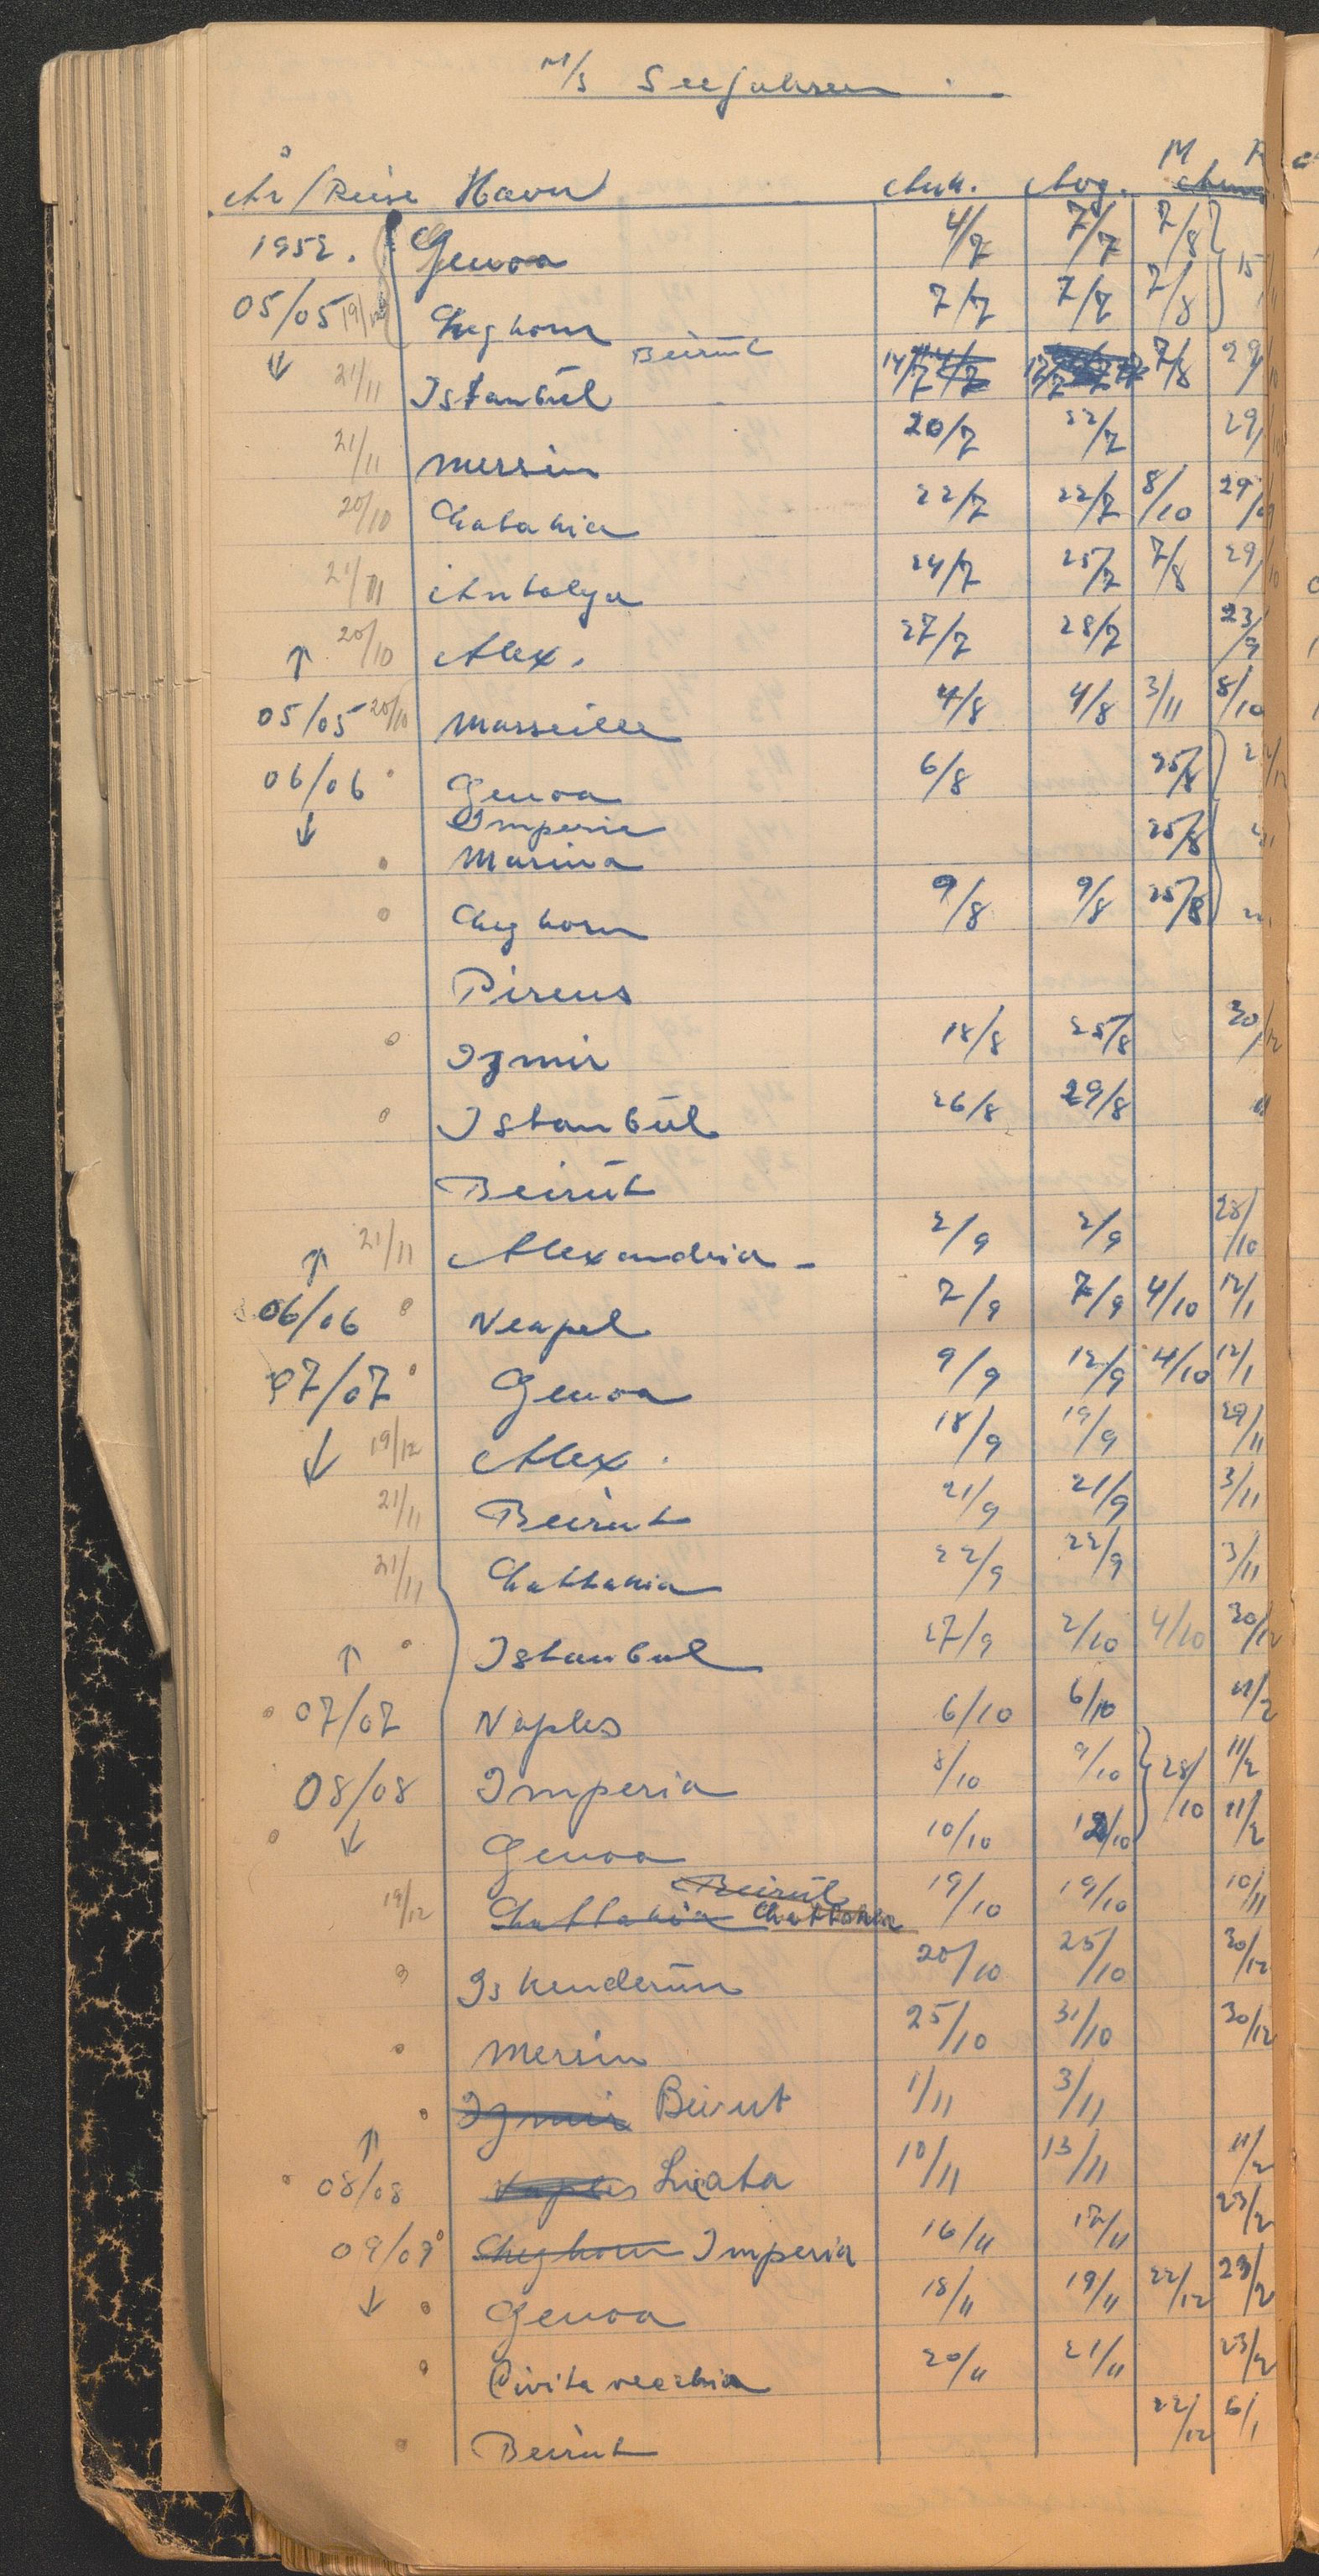 M/S Seefahrer
År/Reise Havn Ank. Avg. M
1952. Genoa 4/7 7/7 7/8
05/05 19/12 Leghorn 7/7 7/7 7/8 15
↓ 21/11 Istanbúl Beirút 14/7 7/8 29/10
21/11 Mersin 20/7 22/7 29/
20/10 Latakia 22/7 22/7 8/10 29/
21/11 Antalya 24/7 25/7 7/8 29/10
↑ 20/10 Alex. 27/7 28/7 23/9
05/05 20/10 Marseille 4/8 4/8 3/11 8/10
06/06 Genoa 6/8 25/8
↓ Imperia 25/8
Marina
Leghorn 9/8 9/8 25/8
Pireus
Izmir 18/8 25/8 30/12
Istanbúl 26/8 29/8
Beirút
↑ 21/11 Alexandria - 2/9 2/9 28/10
06/06 Neapel 7/9 7/9 4/10 12/1
07/07 Genoa 9/9 12/9 4/10 12/1
↓ 19/12 Alex. 18/9 19/9 29/11
21/11 Beirút 21/9 21/9 3/11
21/11 Lattakia 22/9 22/9 3/11
↑ Istanbul 27/9 2/10 4/10 30/12
07/07 Naples 6/10 6/10 11/2
08/08 Imperia 8/10 9/10 28/10 11/2
↓ Genoa 10/10 12/10 11/2
Beirút
19/12 Lattakia Lattakia 19/10 19/10 10/11
Iskenderún 20/10 25/10 30/12
Mersin 25/10 31/10 30/12
Izmir Beirut 1/11 3/11
↑ 08/08 Naples Licata 10/11 13/11 11/2
09/09 Leghorn Imperia 16/11 17/11 23/2
↓ Genoa 18/11 19/11 22/12 23/2
Civitavecchia 20/11 21/11 23/2
Beirút 22/12 6/1